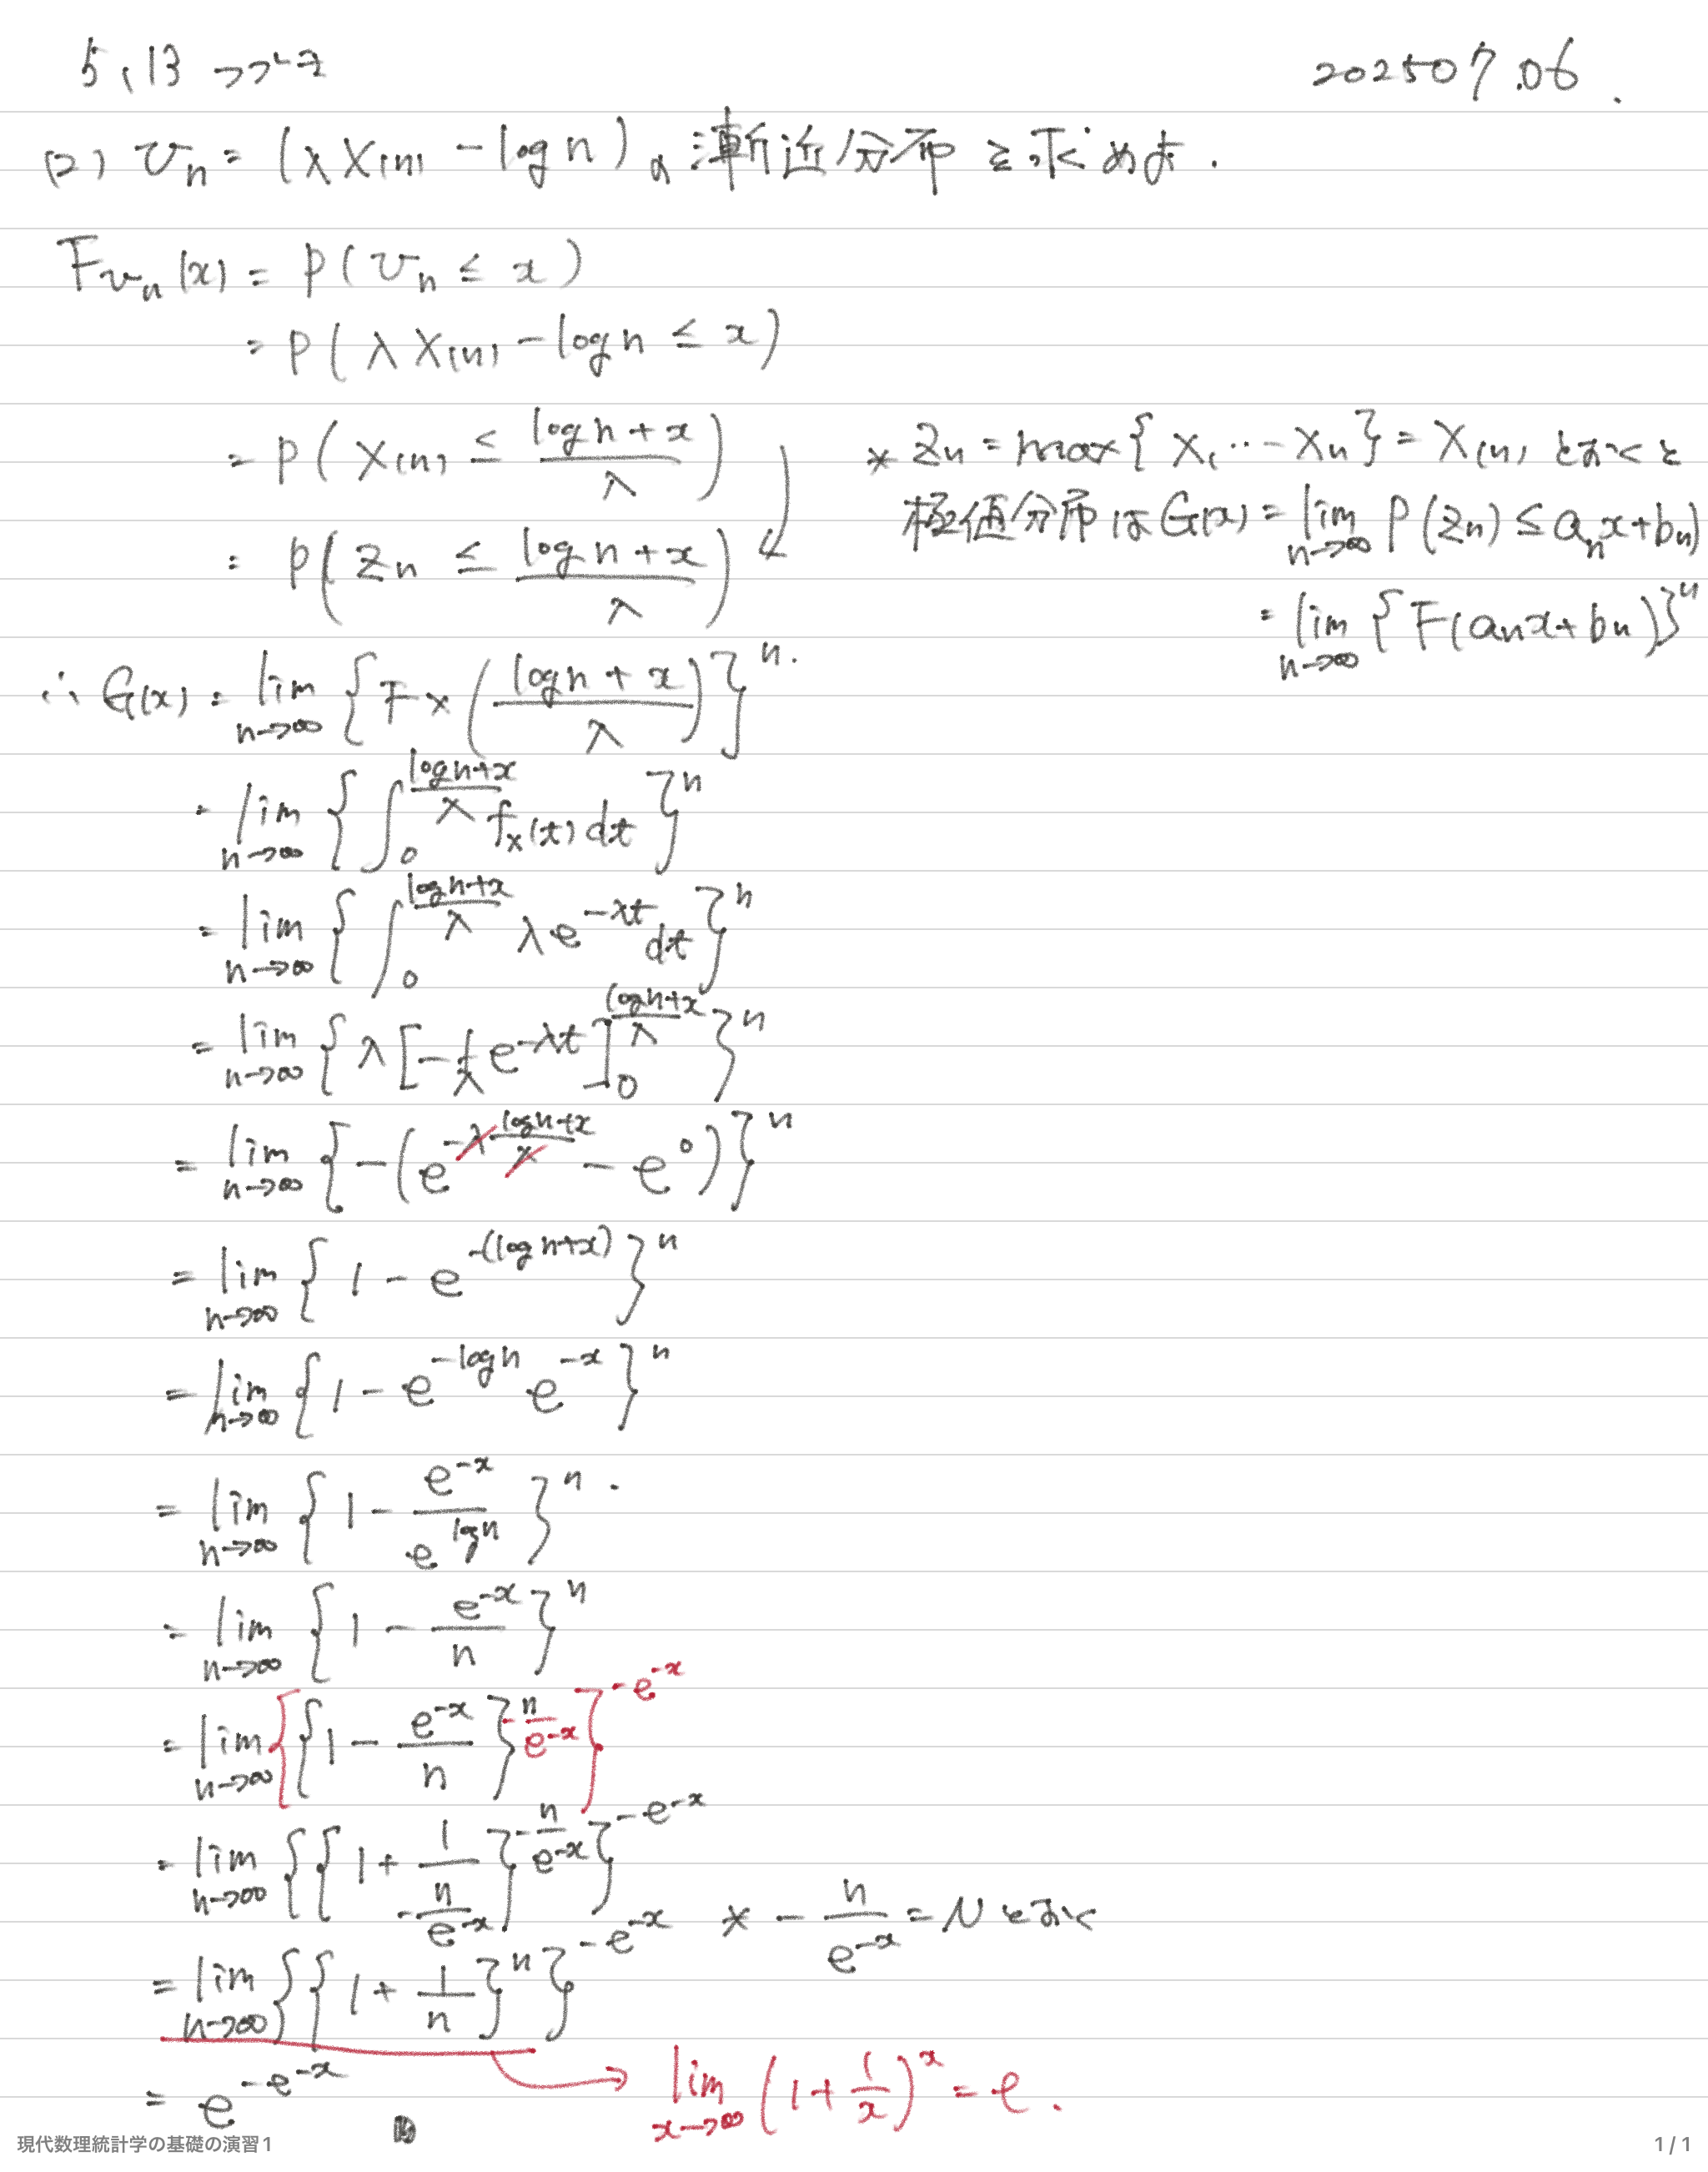 5.13 つづき 20250706.
(2) Vn = (λX(n) - log n)の漸近分布を求めよ.
F_Vn(x) = P(Vn ≤ x)
= P(λX(n) - log n ≤ x)
= P(X(n) ≤ (log n + x)/λ)
= P(Zn ≤ (log n + x)/λ)
* Zn = max{X1 … Xn} = X(n) とおくと
極値分布は G(x) = lim n→∞ P(Zn) ≤ an x + bn)
= lim n→∞ {F(an x + bn)}^n
∴ G(x) = lim n→∞ {F_X((log n + x)/λ)}^n.
= lim n→∞ {∫_0^((log n + x)/λ) f_X(t) dt}^n
= lim n→∞ {∫_0^((log n + x)/λ) λe^(-λt) dt}^n
= lim n→∞ {λ[-1/λ e^(-λt)]_0^((log n + x)/λ)}^n
= lim n→∞ {-(e^(-λ (log n + x)/λ) - e^0)}^n
= lim n→∞ {1 - e^(-(log n + x))}^n
= lim n→∞ {1 - e^(-log n) e^(-x)}^n
= lim n→∞ {1 - e^(-x)/e^(log n)}^n.
= lim n→∞ {1 - e^(-x)/n}^n
= lim n→∞ {{1 - e^(-x)/n}^(-n/e^(-x))}^(-e^(-x))
= lim n→∞ {{1 + 1/(-n/e^(-x))}^(-n/e^(-x))}^(-e^(-x))
* -n/e^(-x) = N とおく
= lim n→∞ {{1 + 1/n}^n}^(-e^(-x))
= e^(-e^(-x))
lim x→∞ (1 + 1/x)^x = e.
現代数理統計学の基礎の演習1
1 / 1